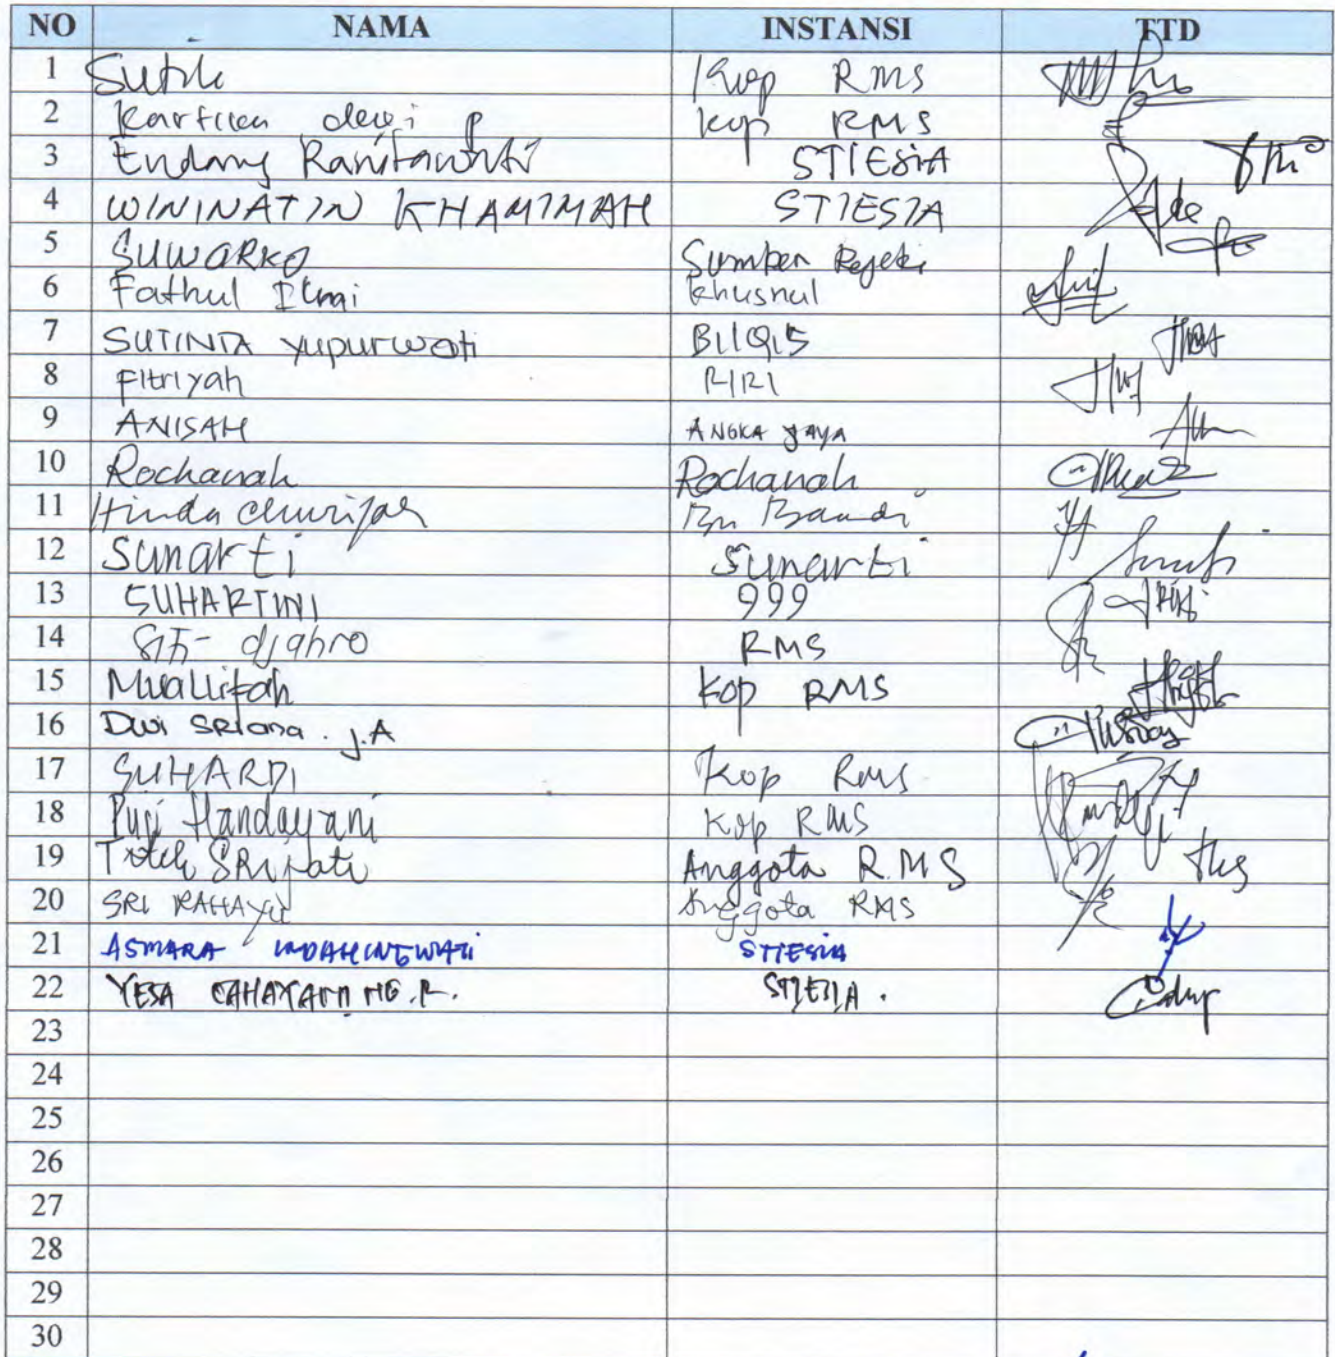 NO NAMA INSTANSI TTD
1 Kop RMS
2 dewi P Kop RMS
3 Endang STIESIA
4 WININATIN KHAMIMAH STIESIA
5 SUWARKO Sumber Rejeki
6 Fathul Ilmi Khusnul
7 SUTINTA yupurwati BILQIS
8 Fitriyah RIRI
9 ANISAH ANGKA JAYA
10 Rochanah Rochanah
11 Hinda Bu
12 Sunarti Sunarti
13 SUHARTINI 999
14 djahro RMS
15 Muallifah Kop RMS
16 Dwi SRIana . J.A
17 SUHARDI Kop RMS
18 Puji Handayani Kop RMS
19 Anggota R.MS
20 SRI RAHAYU Anggota RMS
21 ASMARA INDAHINGWATI STIESIA
22 YESA STIESIA .
23
24
25
26
27
28
29
30